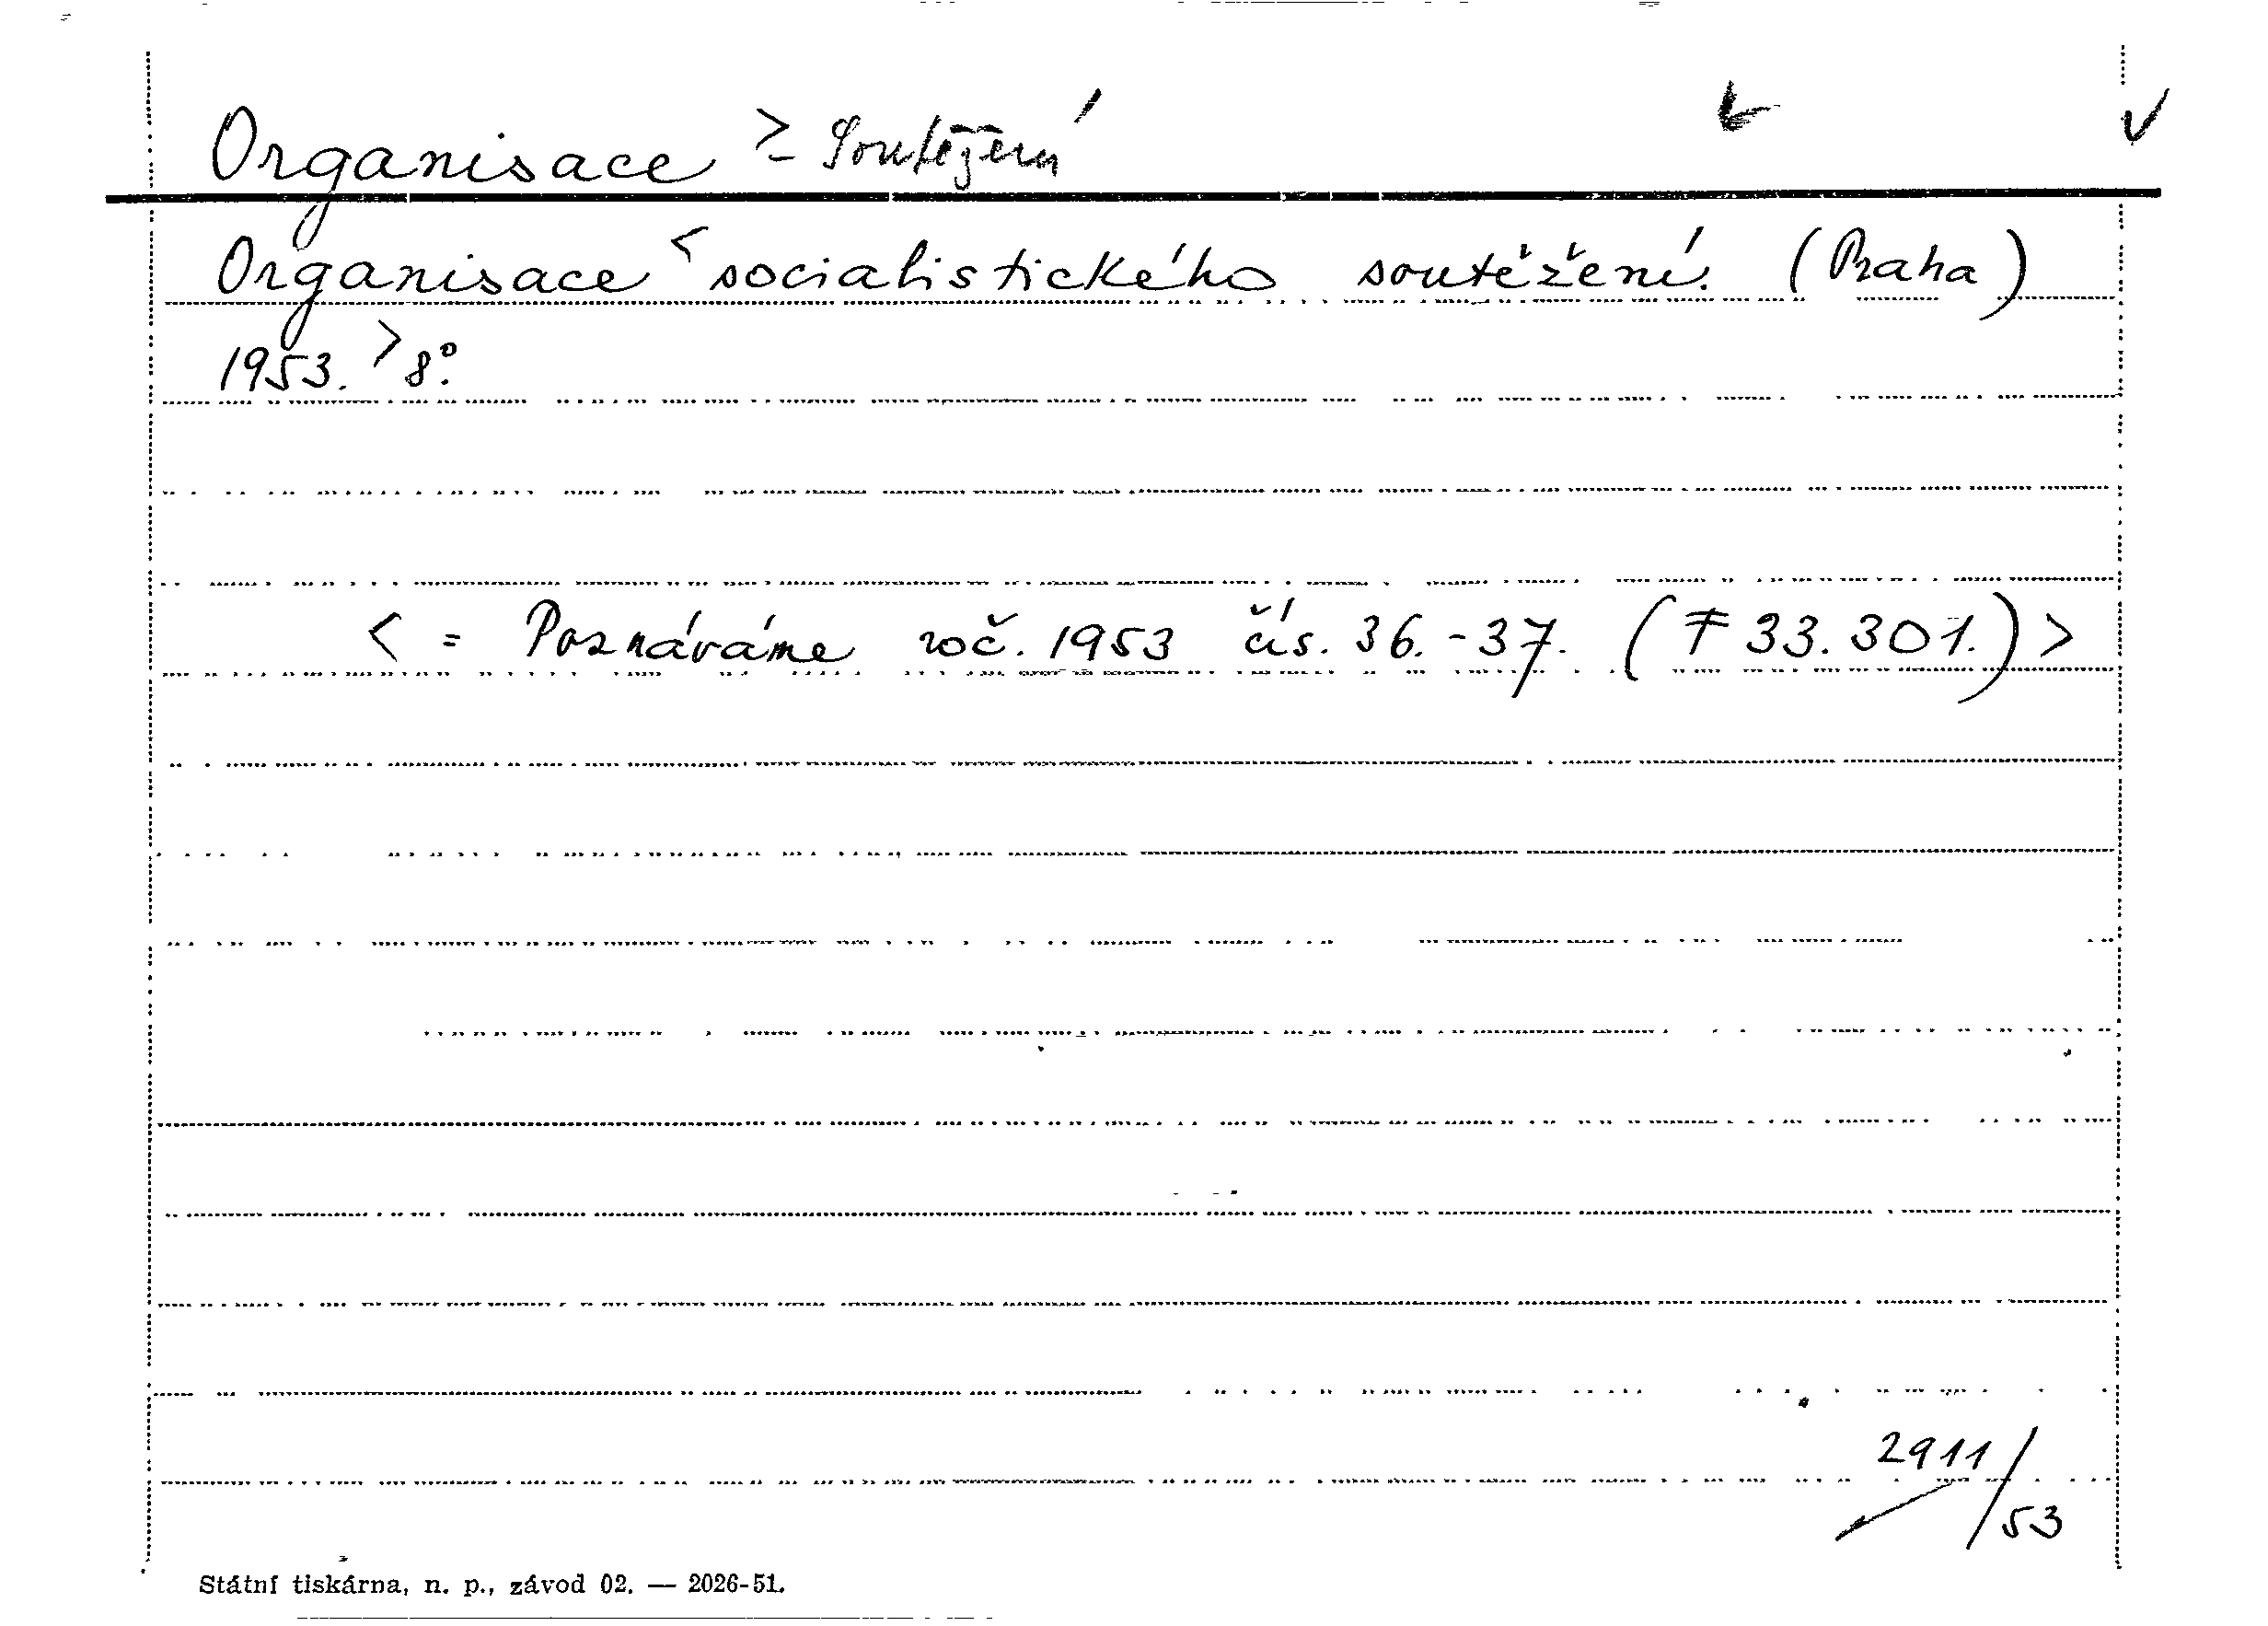 Organisace > - Soutěžení
Organisace < socialistického soutěžení. (Praha)
1953. > 8°.
< = Poznáváme roč. 1953 čís. 36.-37. (F 33.301.) >
2911/53
Státní tiskárna, n. p., závod 02. — 2026-51.